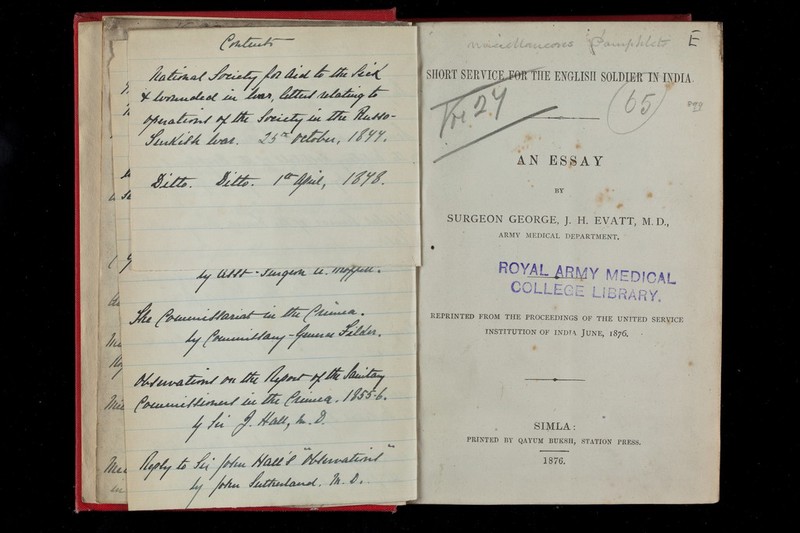 Contents
National Society for Aid to the Sick
& wounded in War, letters relating to
operations of the Society in the Russo-
Turkish War. 25th October, 1877.
Ditto. Ditto. 1st April, 1878.
by Asst-Surgeon
The Commissariat in the Crimea.
by Commissary-General Filder.
Observations on the Report of the Sanitary
Commissioners in the Crimea. 1855-6.
by Sir J. Hall, M.D.
Reply to Sir John Hall's "Observations"
by John Sutherland. M.D.
Miscellaneous Pamphlets E
SHORT SERVICE FOR THE ENGLISH SOLDIER IN INDIA.
Tr. 27
65
AN ESSAY
BY
SURGEON GEORGE, J. H. EVATT, M.D.,
ARMY MEDICAL DEPARTMENT.
ROYAL ARMY MEDICAL
COLLEGE LIBRARY.
REPRINTED FROM THE PROCEEDINGS OF THE UNITED SERVICE
INSTITUTION OF INDIA JUNE, 1876.
SIMLA:
PRINTED BY QAYUM BUKSH, STATION PRESS.
1876.